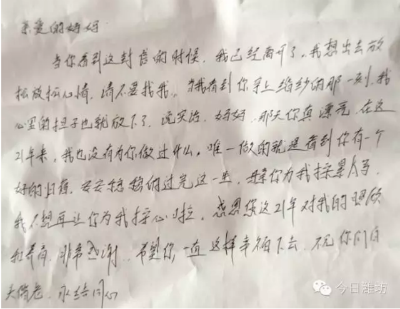 亲爱的妈妈
当你看到这封信的时候，我已经离开了。我想出去放
松放松心情，请不要找我。当我看到你穿上婚纱的那一刻，我
心里的担子也就放下了，说实话，妈妈，那天你真漂亮，在这
21年来，我也没有为你做过什么。唯一做的就是看到你有一个
好的归宿，安安稳稳的过完这一生，
我不想再让你为我操心啦，感恩您这21年对我的照顾
和养育，非常感谢，希望你一直这样幸福下去，祝你们白
头偕老，永结同心
今日潍坊